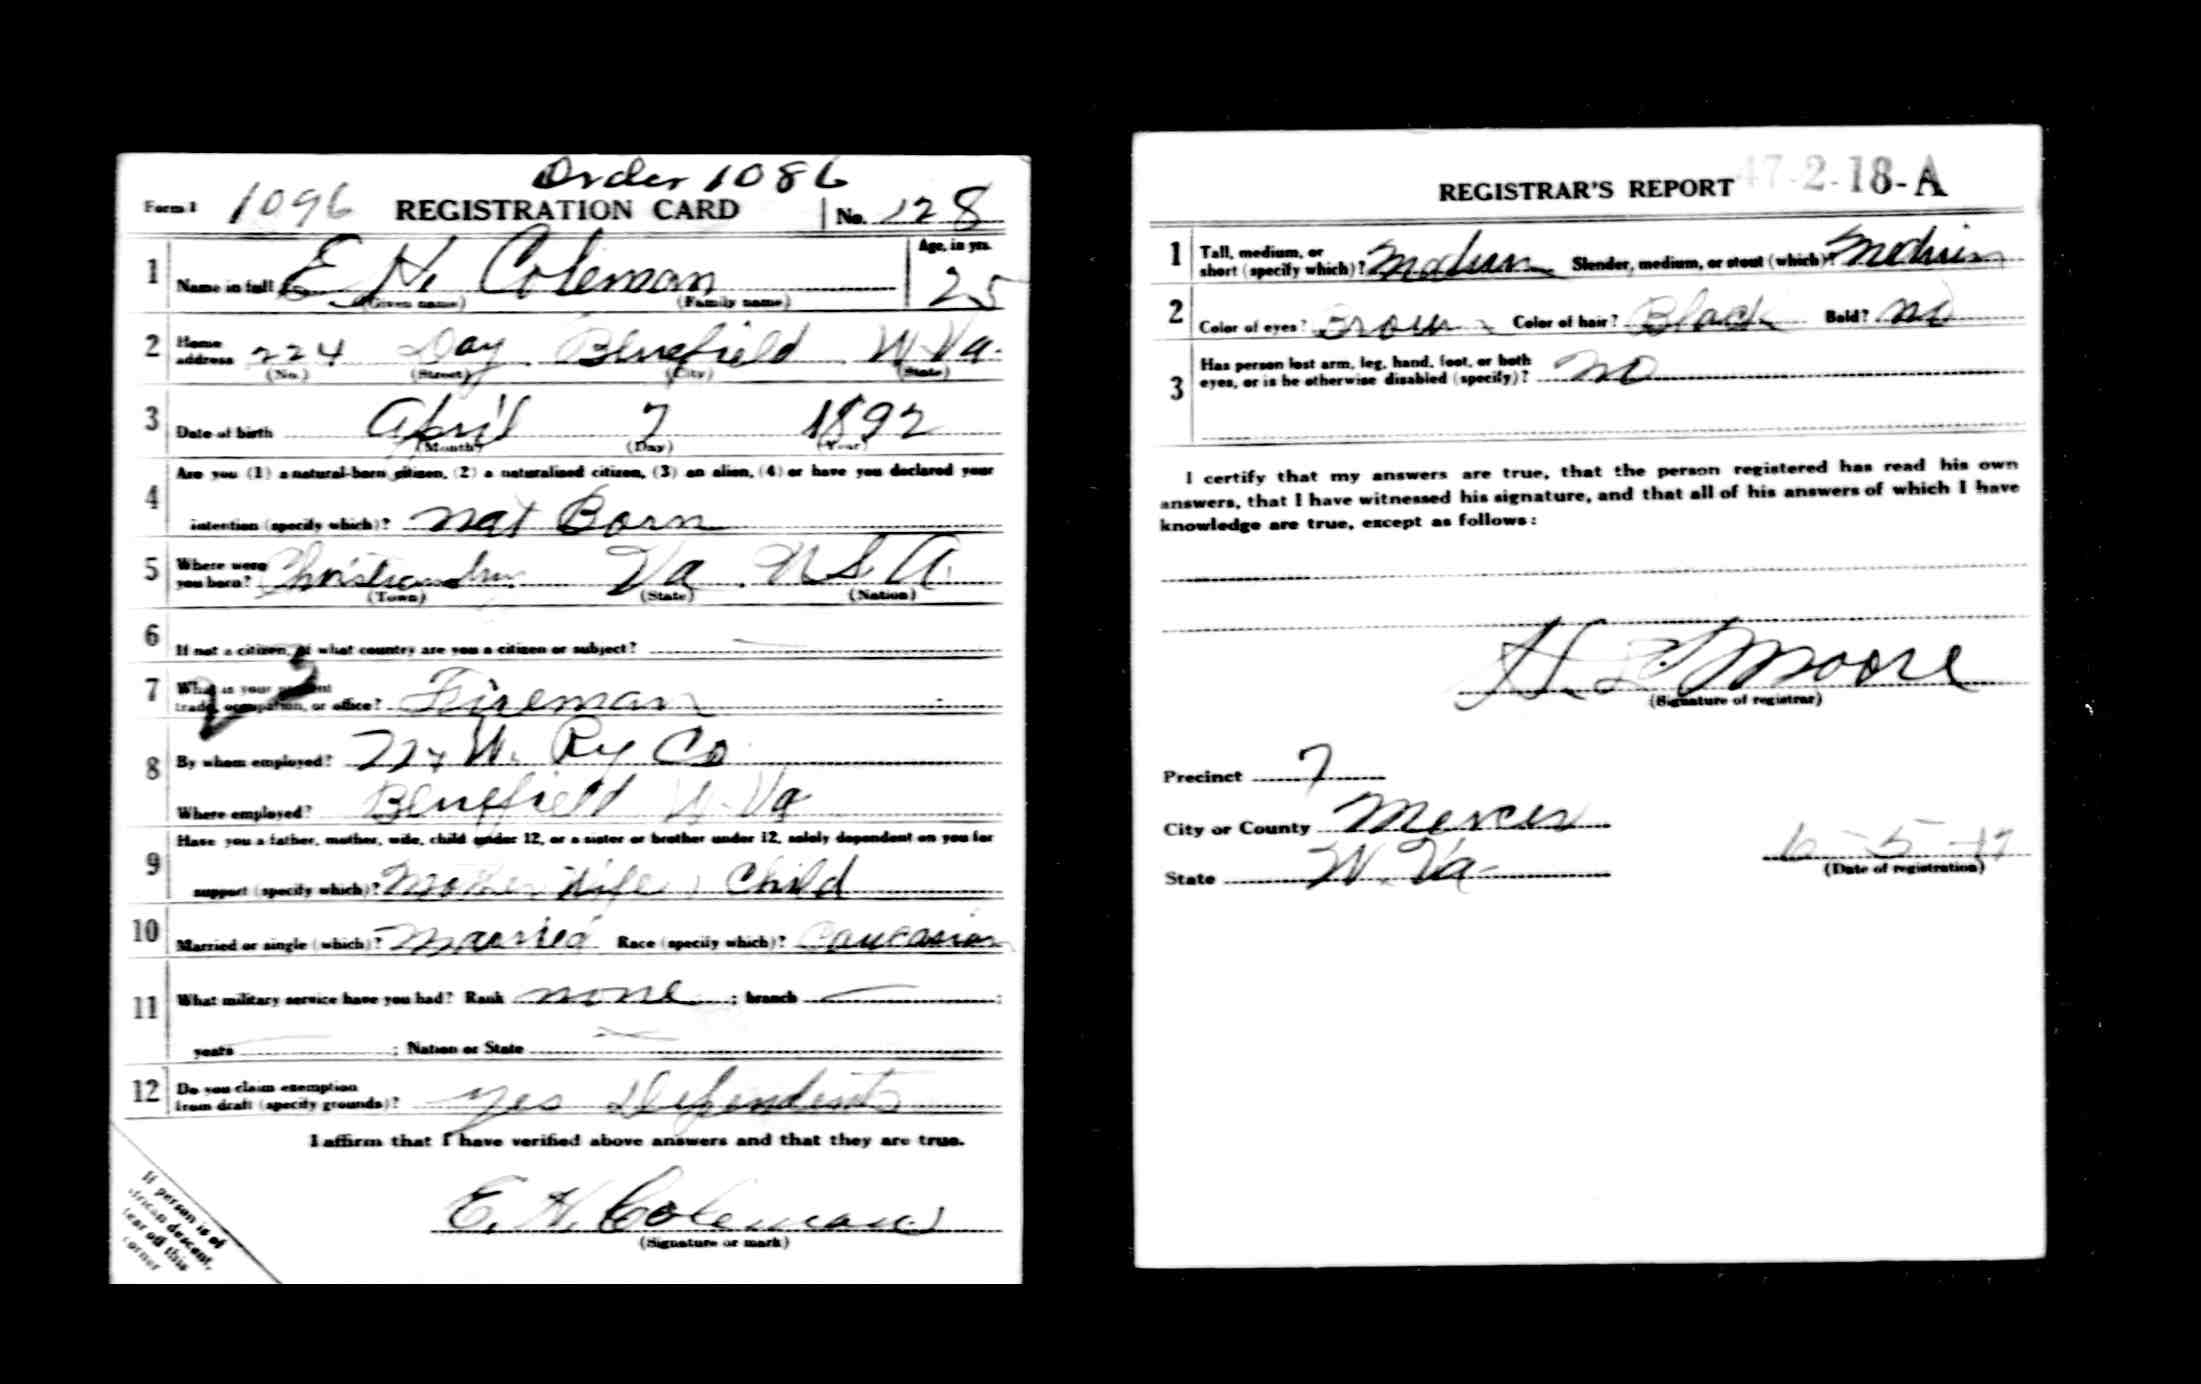 Order 1086
Form 1 1096 REGISTRATION CARD No. 128
1 Name in full E. H. Coleman Age, in yrs. 25
(Given name) (Family name)
2 Home address 224 Day Bluefield W. Va.
(No.) (Street) (City) (State)
3 Date of birth April 7 1892
(Month) (Day) (Year)
Are you (1) a natural-born citizen, (2) a naturalized citizen, (3) an alien, (4) or have you declared your
4 intention (specify which)? Nat Born
5 Where were you born? Va U S A.
(Town) (State) (Nation)
6 If not a citizen, of what country are you a citizen or subject?
7 What is your present trade, occupation, or office? Fireman
8 By whom employed? N & W. Ry Co
Where employed? Bluefield W. Va
Have you a father, mother, wife, child under 12, or a sister or brother under 12, solely dependent on you for
9 support (specify which)? Mother Wife, Child
10 Married or single (which)? Married Race (specify which)? Caucasian
11 What military service have you had? Rank none ; branch ;
years ; Nation or State
12 Do you claim exemption from draft (specify grounds)? Yes Dependents
I affirm that I have verified above answers and that they are true.
E. H. Coleman
(Signature or mark)
If person is of
African descent,
tear off this
corner
REGISTRAR'S REPORT 47-2-18-A
1 Tall, medium, or short (specify which)? Medium Slender, medium, or stout (which)? Medium
2 Color of eyes? Brown Color of hair? Black Bald? No
3 Has person lost arm, leg, hand, foot, or both eyes, or is he otherwise disabled (specify)? No
I certify that my answers are true, that the person registered has read his own
answers, that I have witnessed his signature, and that all of his answers of which I have
knowledge are true, except as follows:
Moore
(Signature of registrar)
Precinct 7
City or County Mercer
State W. Va. 6-5-17
(Date of registration)